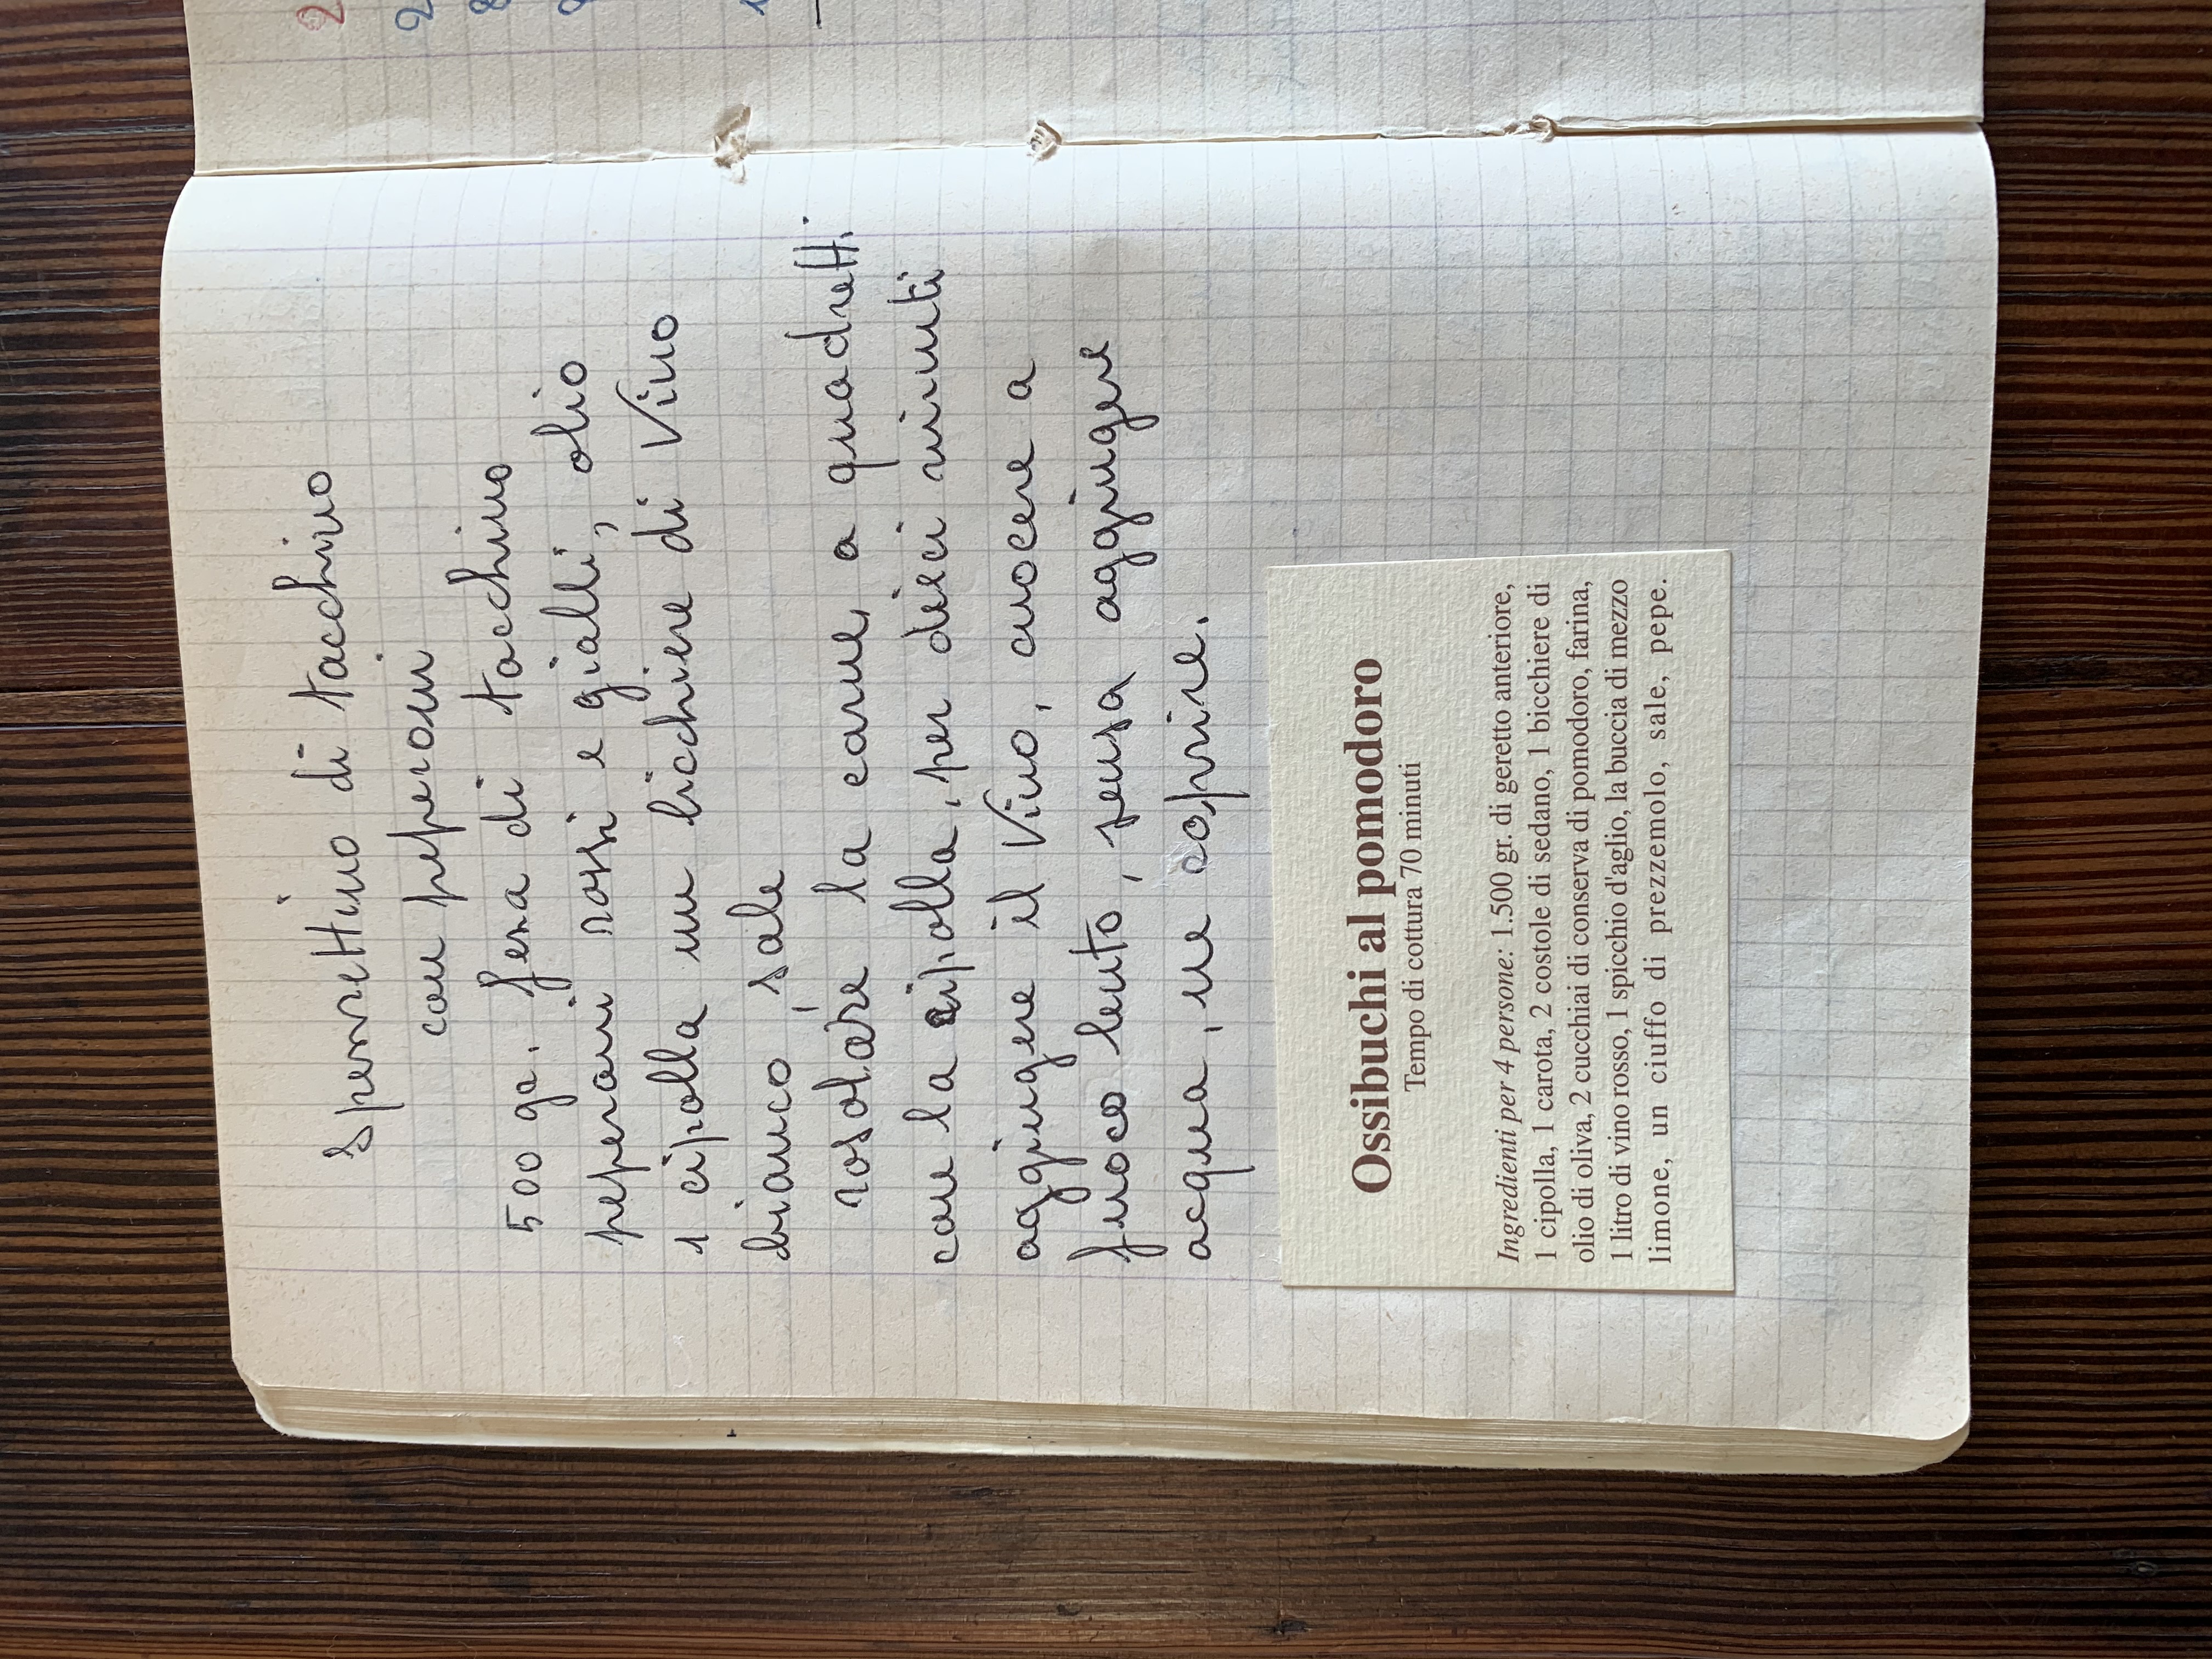 Spezzettino di tacchino
con peperoni
500 gr. fesa di tacchino
peperoni rossi e gialli, olio
1 cipolla un bicchiere di Vino
bianco, sale
rosolare la carne, a quadretti
con la cipolla, per dieci minuti
aggiungere il Vino, cuocere a
fuoco lento, senza aggiungere
acqua, ne coprire.
Ossibuchi al pomodoro
Tempo di cottura 70 minuti
Ingredienti per 4 persone: 1.500 gr. di geretto anteriore,
1 cipolla, 1 carota, 2 costole di sedano, 1 bicchiere di
olio di oliva, 2 cucchiai di conserva di pomodoro, farina,
1 litro di vino rosso, 1 spicchio d'aglio, la buccia di mezzo
limone, un ciuffo di prezzemolo, sale, pepe.
2
2
8